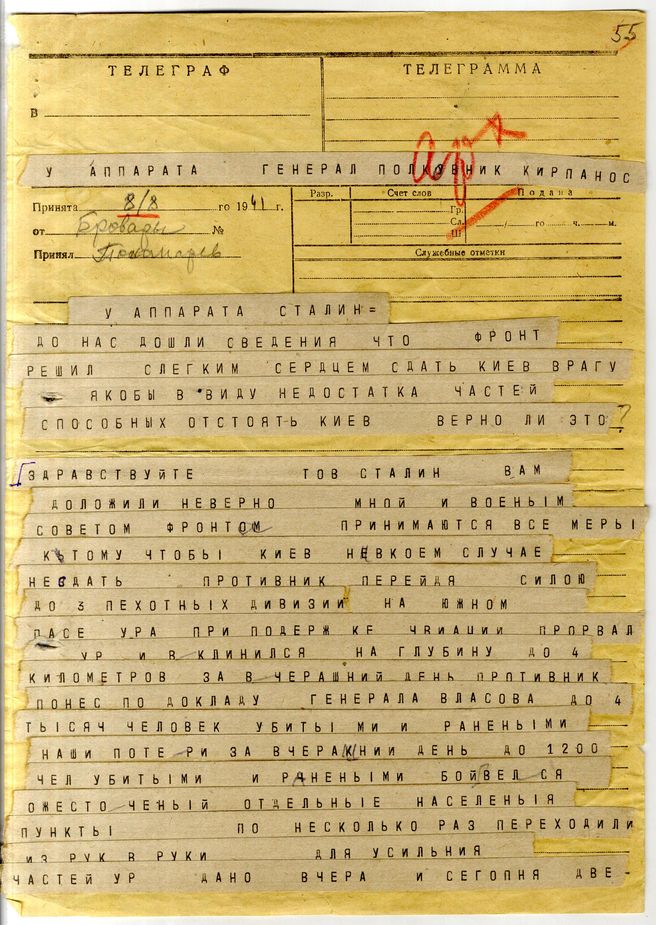 55
ТЕЛЕГРАФ
ТЕЛЕГРАММА
В
У АППАРАТА ГЕНЕРАЛ ПОЛКОВНИК КИРПАНОС
Разр. Счет слов Подана
Принята 8/8 го 1941 г.
Гр.
от Бровары №
Сл. / го ч. м.
Ш
Принял
Служебные отметки
У АППАРАТА СТАЛИН=
ДО НАС ДОШЛИ СВЕДЕНИЯ ЧТО ФРОНТ
РЕШИЛ СЛЕГКИМ СЕРДЦЕМ СДАТЬ КИЕВ ВРАГУ
ЯКОБЫ В ВИДУ НЕДОСТАТКА ЧАСТЕЙ
СПОСОБНЫХ ОТСТОЯТЬ КИЕВ ВЕРНО ЛИ ЭТО?
ЗДРАВСТВУЙТЕ ТОВ СТАЛИН ВАМ
ДОЛОЖИЛИ НЕВЕРНО МНОЙ И ВОЕНЫМ
СОВЕТОМ ФРОНТОМ ПРИНИМАЮТСЯ ВСЕ МЕРЫ
КЬТОМУ ЧТОБЫ КИЕВ НЕВКОЕМ СЛУЧАЕ
НЕСДАТЬ ПРОТИВНИК ПЕРЕЙДЯ СИЛОЮ
ДО 3 ПЕХОТНЫХ ДИВИЗИИ НА ЮЖНОМ
ФАСЕ УРА ПРИ ПОДЕРЖ КЕ ЧВИАЦИИ ПРОРВАЛ
УР И В КЛИНИЛСЯ НА ГЛУБИНУ ДО 4
КИЛОМЕТРОВ ЗА В ЧЕРАШНИЙ ДЕНЬ ПРОТИВНИК
ПОНЕС ПО ДОКЛАДУ ГЕНЕРАЛА ВЛАСОВА ДО 4
ТЫСЯЧ ЧЕЛОВЕК УБИТЫ МИ И РАНЕНЫМИ
НАШИ ПОТЕ РИ ЗА ВЧЕРАШНИЙ ДЕНЬ ДО 1200
ЧЕЛ УБИТЫМИ И РАНЕНЫМИ БОЙВЕЛ СЯ
ОЖЕСТО ЧЕНЫЙ ОТДЕЛЬНЫЕ НАСЕЛЕНЫЯ
ПУНКТЫ ПО НЕСКОЛЬКО РАЗ ПЕРЕХОДИЛИ
ИЗ РУК В РУКИ ДЛЯ УСИЛЬНИЯ
ЧАСТЕЙ УР ДАНО ВЧЕРА И СЕГОПНЯ ДВЕ-